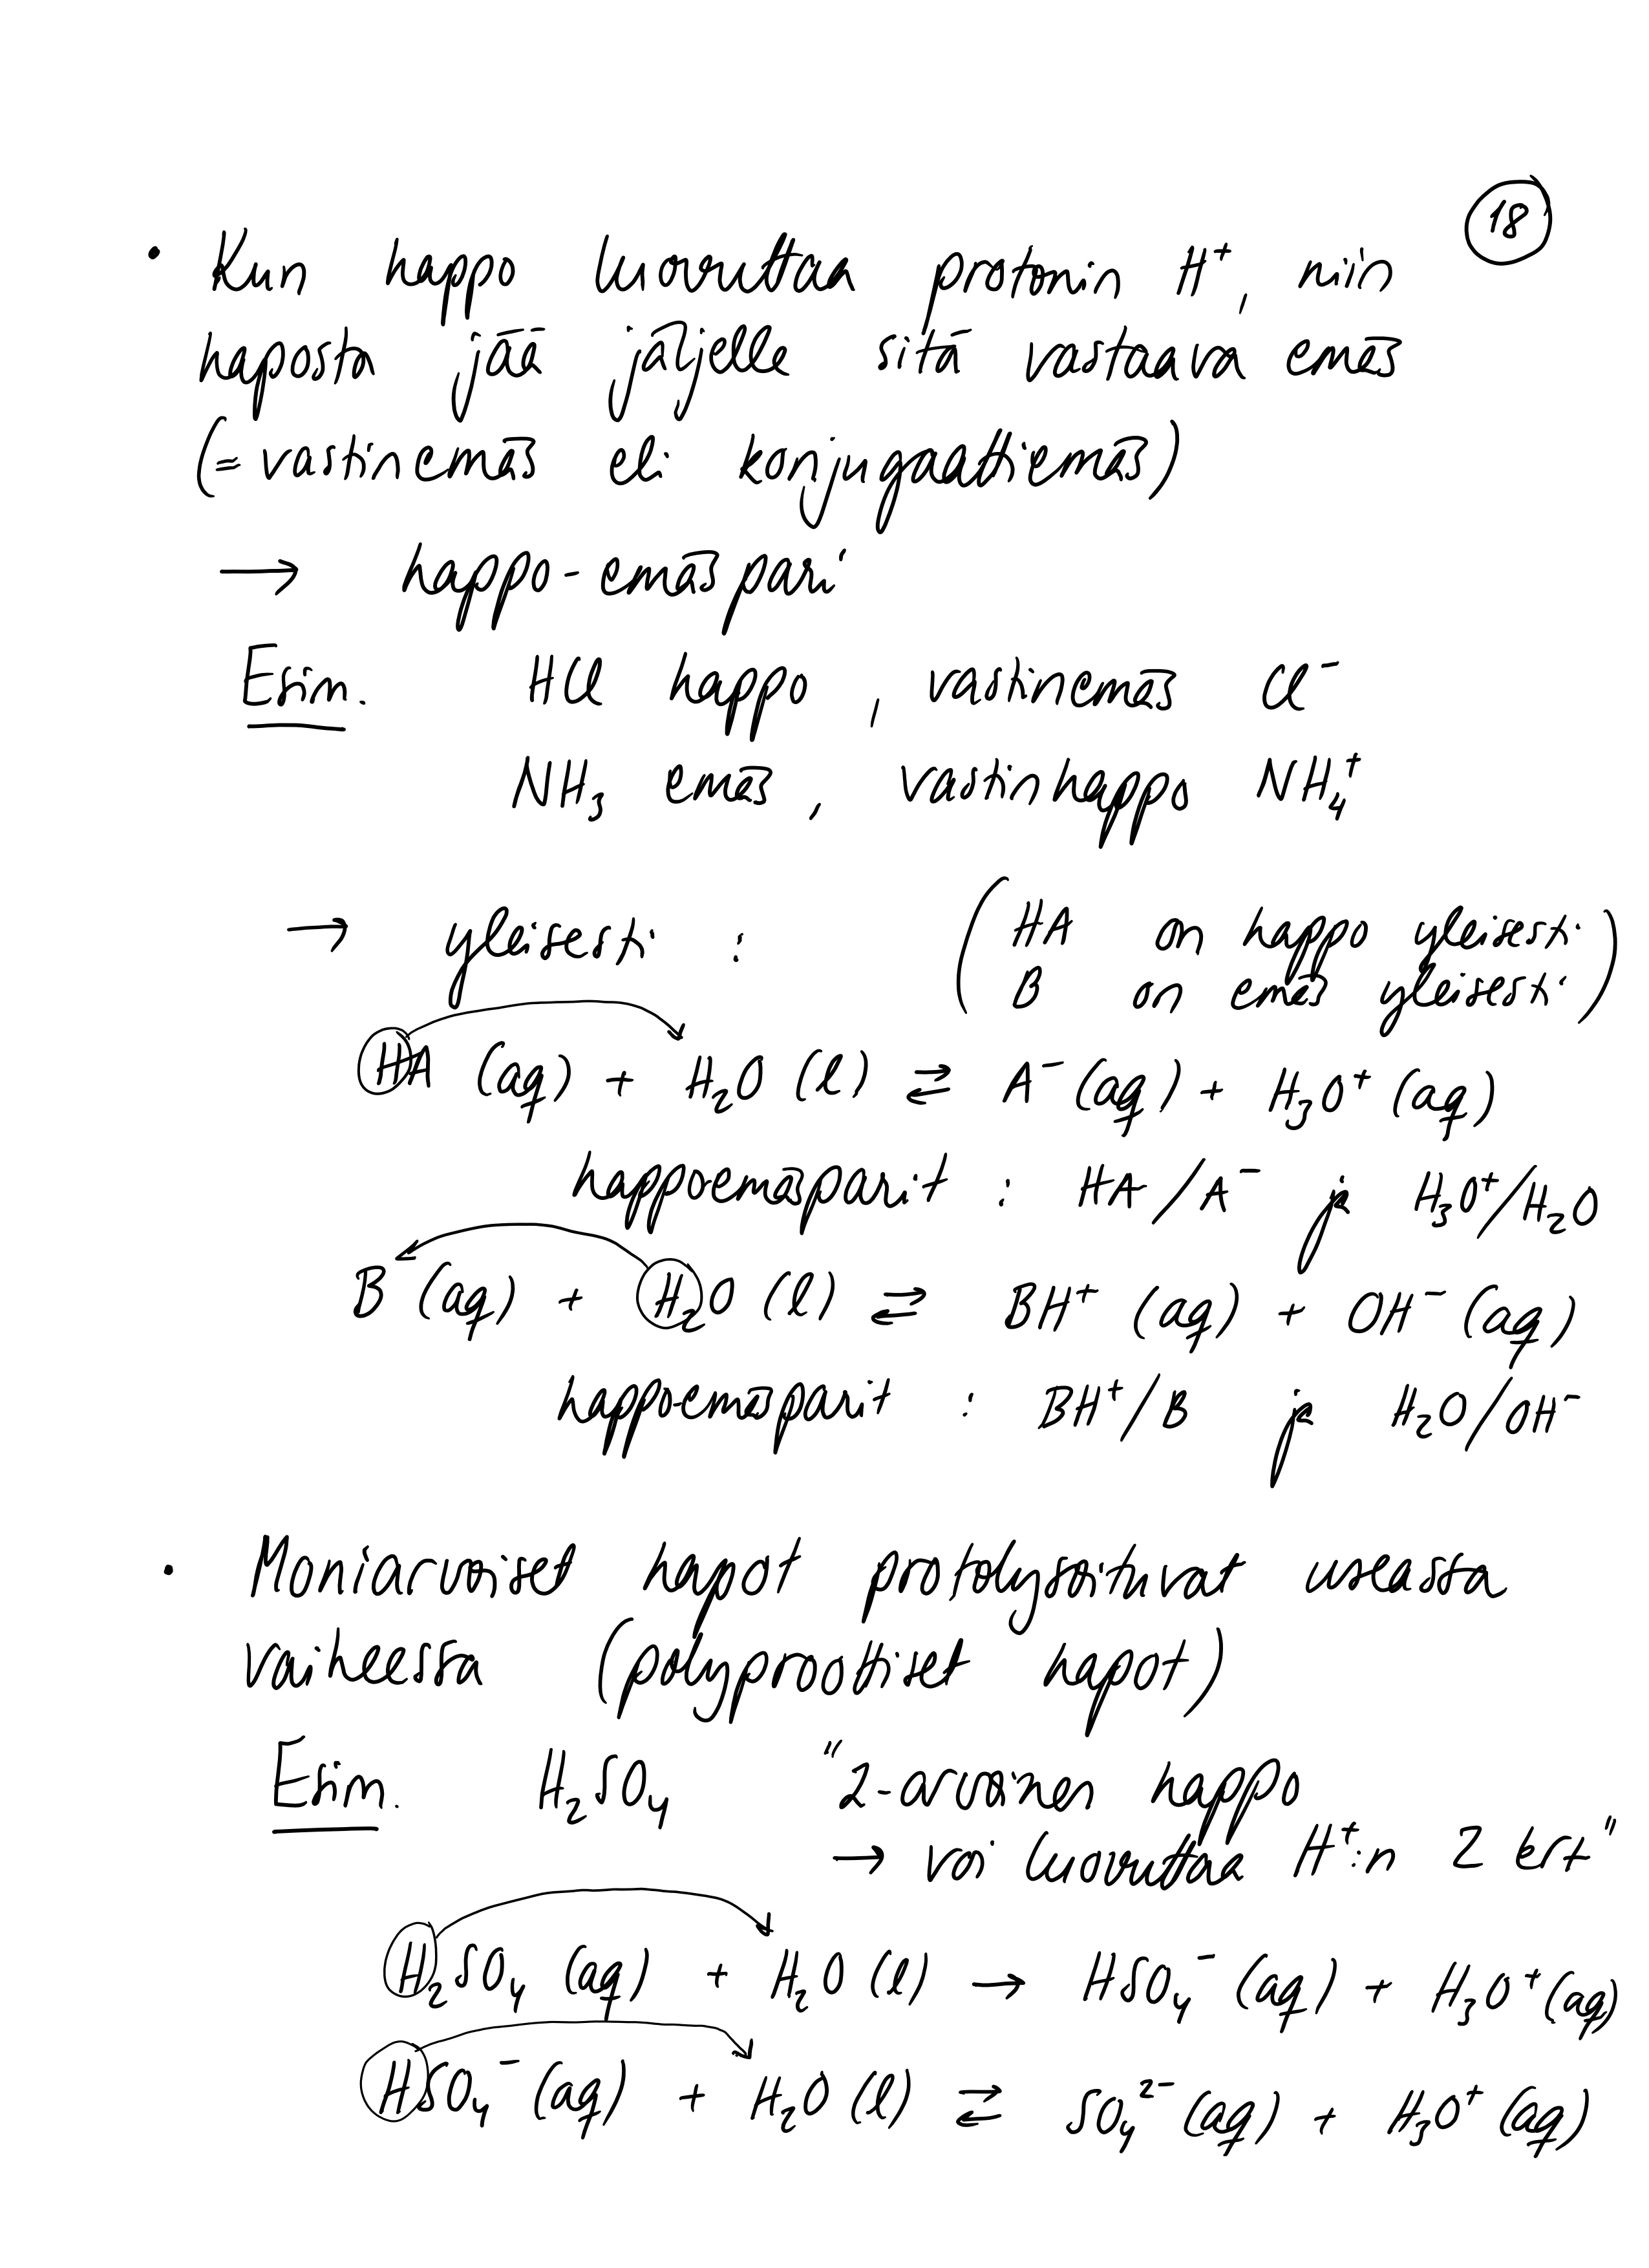 18
• Kun happo luovuttaa protonin H⁺, niin
haposta jää jäljelle sitä vastaava emäs
(= vastinemäs eli konjugaattiemäs)
→ happo-emäspari
Esim. HCl happo, vastinemäs Cl⁻
NH₃ emäs, vastinhappo NH₄⁺
→ yleisesti : (HA on happo yleisesti
B on emäs yleisesti)
HA (aq) + H₂O (l) ⇄ A⁻ (aq) + H₃O⁺ (aq)
happoemäsparit : HA/A⁻ ja H₃O⁺/H₂O
B (aq) + H₂O (l) ⇄ BH⁺ (aq) + OH⁻ (aq)
happo-emäsparit : BH⁺/B ja H₂O/OH⁻
• Moniarvoiset hapot protolysoituvat useassa
vaiheessa (polyproottiset hapot)
Esim. H₂SO₄ "2-arvoinen happo
→ voi luovuttaa H⁺:n 2 krt"
H₂SO₄ (aq) + H₂O (l) → HSO₄⁻ (aq) + H₃O⁺ (aq)
HSO₄⁻ (aq) + H₂O (l) ⇄ SO₄²⁻ (aq) + H₃O⁺ (aq)